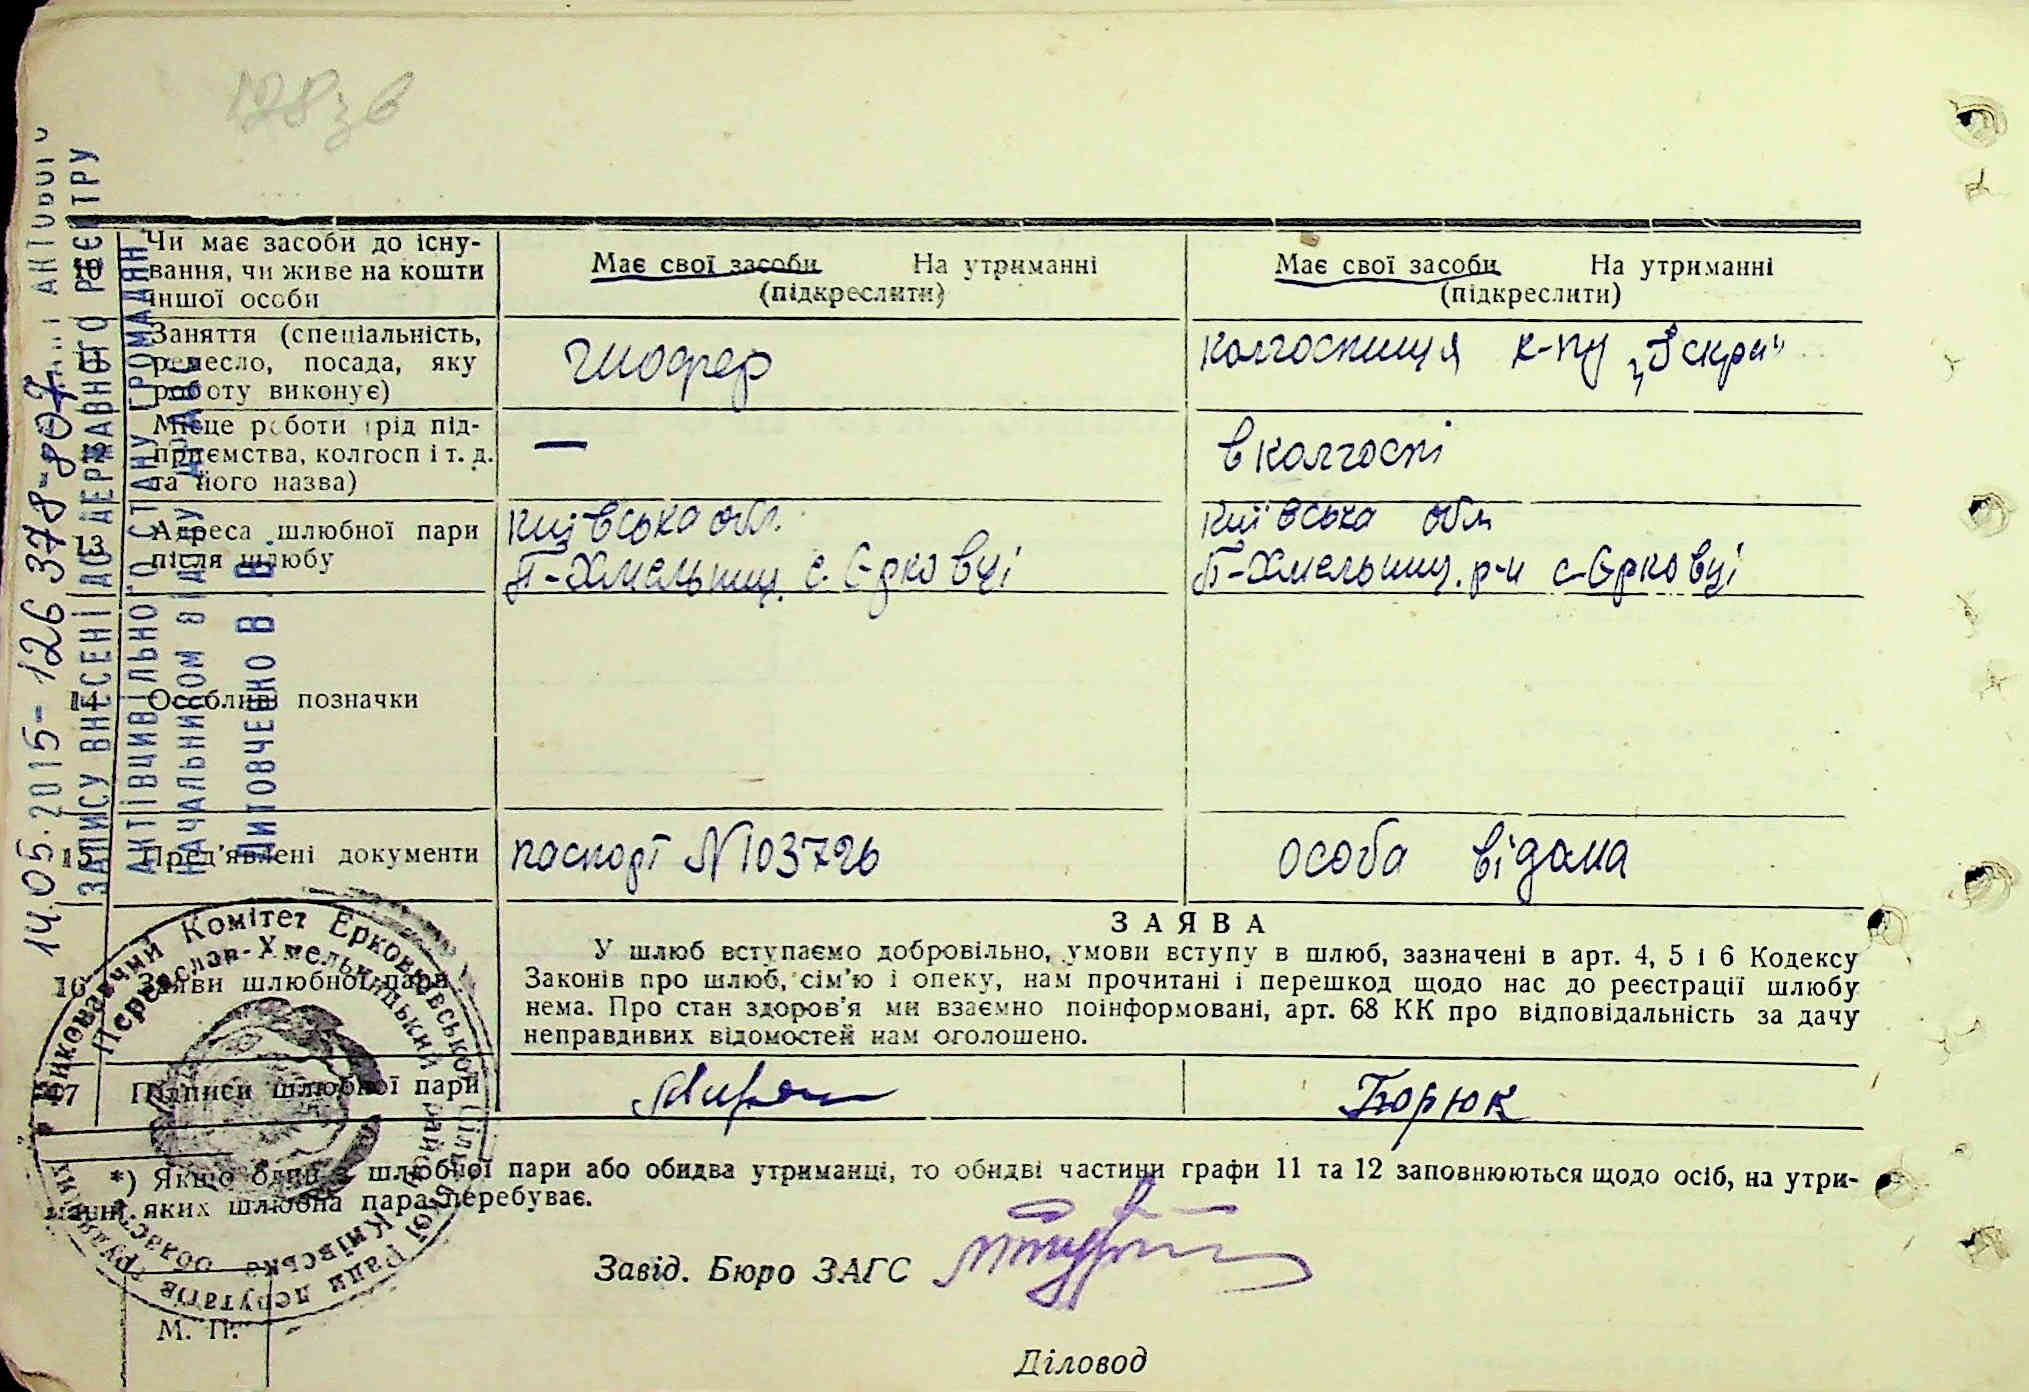 128 зв
10 Чи має засоби до існу-
вання, чи живе на кошти
іншої особи
Має свої засоби На утриманні
(підкреслити)
Має свої засоби На утриманні
(підкреслити)
11 Заняття (спеціальність,
ремесло, посада, яку
роботу виконує)
шофер
колгоспниця к-пу „Іскра"
12 Місце роботи (рід під-
приємства, колгосп і т. д.
та його назва)
—
в колгоспі
13 Адреса шлюбної пари
після шлюбу
Київська обл.
П-Хмельниц. с. Єрковці
Київська обл
П-Хмельниц. р-н с-Єрковці
14 Особливі позначки
15 Пред'явлені документи
паспорт N 103726
особа відома
16 Заяви шлюбної пари
ЗАЯВА
У шлюб вступаємо добровільно, умови вступу в шлюб, зазначені в арт. 4, 5 і 6 Кодексу
Законів про шлюб, сім'ю і опеку, нам прочитані і перешкод щодо нас до реєстрації шлюбу
нема. Про стан здоров'я ми взаємно поінформовані, арт. 68 КК про відповідальність за дачу
неправдивих відомостей нам оголошено.
17 Підписи шлюбної пари
Борюк
*) Якщо один з шлюбної пари або обидва утриманці, то обидві частини графи 11 та 12 заповнюються щодо осіб, на утри-
манні яких шлюбна пара перебуває.
Завід. Бюро ЗАГС
М. П.
Діловод
АКТОВОГО
ЗАПИСУ ВНЕСЕНІ ДО ДЕРЖАВНОГО РЕЄСТРУ
АКТІВ ЦИВІЛЬНОГО СТАНУ ГРОМАДЯН
НАЧАЛЬНИКОМ ВІДДІЛУ ДРАЦС
Литовченко В. В.
14.05.2015 - 126 378-807
Виконавчий Комітет Ерковецької сільської Ради депутатів трудящих
Переяслав-Хмельницький район Київська область